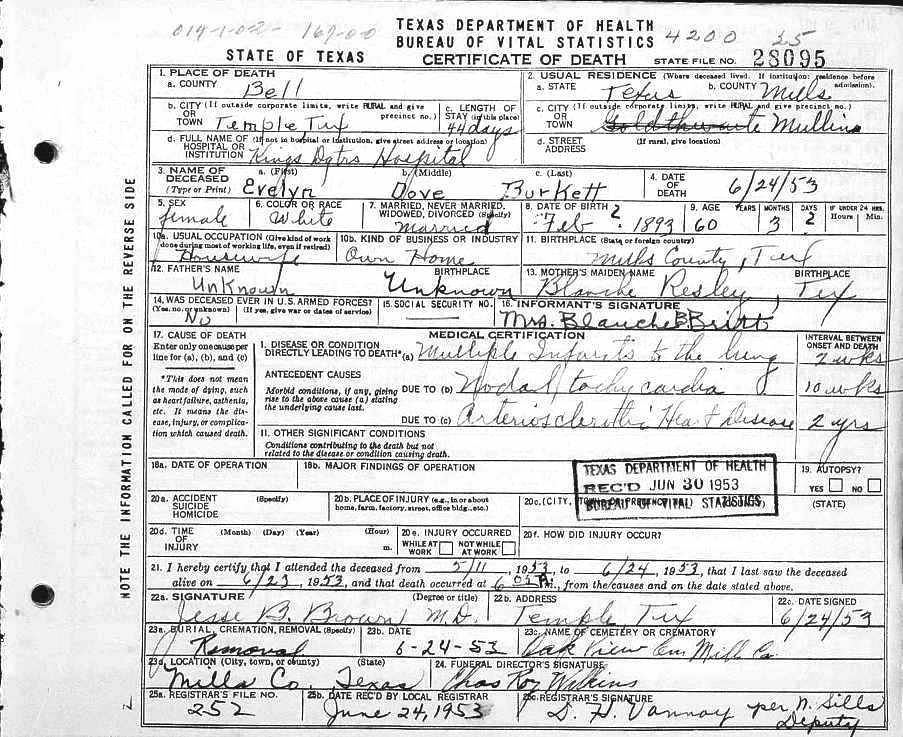 TEXAS DEPARTMENT OF HEALTH
BUREAU OF VITAL STATISTICS 4200 25
STATE OF TEXAS CERTIFICATE OF DEATH STATE FILE NO. 28095
1. PLACE OF DEATH
a. COUNTY Bell
2. USUAL RESIDENCE (Where deceased lived. If institution: residence before admission).
a. STATE Texas b. COUNTY Mills
b. CITY (If outside corporate limits, write RURAL and give precinct no.)
OR TOWN Temple Tex
c. LENGTH OF STAY (in this place) 44 days
c. CITY (If outside corporate limits, write RURAL and give precinct no.)
OR TOWN Goldthwaite Mullin
d. FULL NAME OF (If not in hospital or institution, give street address or location)
HOSPITAL OR INSTITUTION Kings Dgtrs Hospital
d. STREET ADDRESS (If rural, give location)
3. NAME OF DECEASED (Type or Print)
a. (First) b. (Middle) c. (Last)
Evelyn Dove Burkett
4. DATE OF DEATH 6/24/53
5. SEX female
6. COLOR OR RACE White
7. MARRIED, NEVER MARRIED, WIDOWED, DIVORCED (Specify) Married
8. DATE OF BIRTH Feb. 2 1893
9. AGE YEARS MONTHS DAYS
60 3 2
IF UNDER 24 HRS. Hours Min.
10a. USUAL OCCUPATION (Give kind of work done during most of working life, even if retired) Housewife
10b. KIND OF BUSINESS OR INDUSTRY Own Home
11. BIRTHPLACE (State or foreign country) Mills County, Tex
12. FATHER'S NAME BIRTHPLACE
Unknown Unknown
13. MOTHER'S MAIDEN NAME BIRTHPLACE
Blanche Resley, Tex
14. WAS DECEASED EVER IN U.S. ARMED FORCES?
(Yes, no, or unknown) (If yes, give war or dates of service)
No
15. SOCIAL SECURITY NO.
16. INFORMANT'S SIGNATURE
Mrs. Blanche B Britt
17. CAUSE OF DEATH
Enter only one cause per line for (a), (b), and (c)
*This does not mean the mode of dying, such as heart failure, asthenia, etc. It means the disease, injury, or complication which caused death.
MEDICAL CERTIFICATION
INTERVAL BETWEEN ONSET AND DEATH
I. DISEASE OR CONDITION DIRECTLY LEADING TO DEATH* (a) Multiple Infarcts to the lung 2 wks
ANTECEDENT CAUSES
Morbid conditions, if any, giving rise to the above cause (a) stating the underlying cause last.
DUE TO (b) Nodal tachycardia 10 wks
DUE TO (c) Arteriosclerotic Heart Disease 2 yrs
II. OTHER SIGNIFICANT CONDITIONS
Conditions contributing to the death but not related to the disease or condition causing death.
18a. DATE OF OPERATION
18b. MAJOR FINDINGS OF OPERATION
19. AUTOPSY?
YES NO
TEXAS DEPARTMENT OF HEALTH
REC'D JUN 30 1953
BUREAU OF VITAL STATISTICS
20a. ACCIDENT (Specify)
SUICIDE
HOMICIDE
20b. PLACE OF INJURY (e.g., in or about home, farm, factory, street, office bldg., etc.)
20c. (CITY, TOWN, OR PRECINCT NO.) (COUNTY) (STATE)
20d. TIME OF INJURY (Month) (Day) (Year) (Hour) m.
20e. INJURY OCCURRED
WHILE AT WORK NOT WHILE AT WORK
20f. HOW DID INJURY OCCUR?
21. I hereby certify that I attended the deceased from 5/11, 1953, to 6/24, 1953, that I last saw the deceased
alive on 6/23, 1953, and that death occurred at 6 05 A m., from the causes and on the date stated above.
22a. SIGNATURE (Degree or title)
Jesse B. Brown M.D.
22b. ADDRESS
Temple Tex
22c. DATE SIGNED
6/24/53
23a. BURIAL, CREMATION, REMOVAL (Specify)
Removal
23b. DATE
6-24-53
23c. NAME OF CEMETERY OR CREMATORY
Oak View Mill Co.
23d. LOCATION (City, town, or county) (State)
Mills Co, Texas
24. FUNERAL DIRECTOR'S SIGNATURE
Chas Roy Wilkins
25a. REGISTRAR'S FILE NO.
252
25b. DATE REC'D BY LOCAL REGISTRAR
June 24, 1953
25c. REGISTRAR'S SIGNATURE
D. H. Vannoy per N. Sills
Deputy
NOTE THE INFORMATION CALLED FOR ON THE REVERSE SIDE